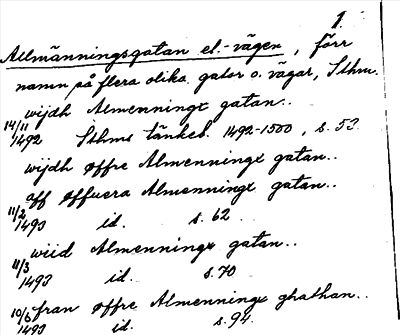 1.
Allmänningsgatan el. -vägen, förr
namn på flera olika gator o. vägar, Sthm.
wijdh Almenningx gatan..
14/11 1492 Sthms tänkeb. 1492-1500, s. 53
wijdh øffre Almenningx gatan..
aff øffuera Almenningx gatan..
11/2 1493 id. s. 62.
wiid Almenningx gatan..
11/3 1493 id. s. 70.
fran øffre Almenningx ghathan..
10/6 1493 id. s. 94.